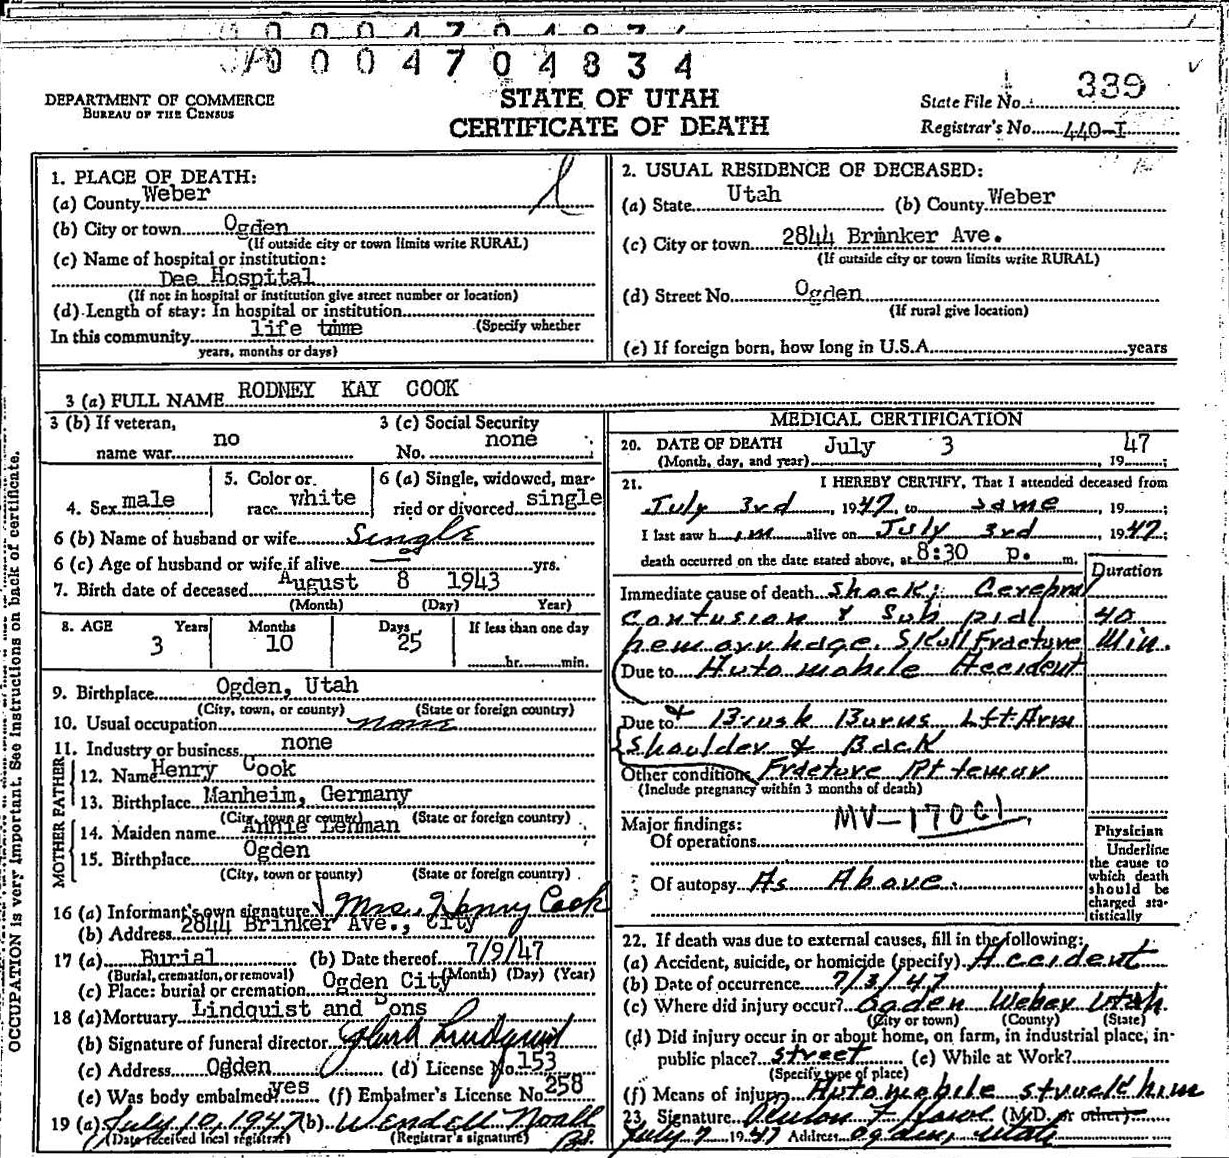 0004704834
DEPARTMENT OF COMMERCE
BUREAU OF THE CENSUS
STATE OF UTAH
CERTIFICATE OF DEATH
State File No. 339
Registrar's No. 440-I
1. PLACE OF DEATH:
(a) County Weber
(b) City or town Ogden
(If outside city or town limits write RURAL)
(c) Name of hospital or institution:
Dee Hospital
(If not in hospital or institution give street number or location)
(d) Length of stay: In hospital or institution
(Specify whether
In this community life time
years, months or days)
2. USUAL RESIDENCE OF DECEASED:
(a) State Utah (b) County Weber
(c) City or town 2844 Brinker Ave.
(If outside city or town limits write RURAL)
(d) Street No. Ogden
(If rural give location)
(e) If foreign born, how long in U.S.A. years
3 (a) FULL NAME RODNEY KAY COOK
3 (b) If veteran, name war no
3 (c) Social Security No. none
4. Sex male
5. Color or race white
6 (a) Single, widowed, married or divorced single
6 (b) Name of husband or wife Single
6 (c) Age of husband or wife if alive yrs.
7. Birth date of deceased August 8 1943
(Month) (Day) Year)
8. AGE Years Months Days If less than one day
3 10 25 hr. min.
9. Birthplace Ogden, Utah
(City, town, or county) (State or foreign country)
10. Usual occupation none
11. Industry or business none
FATHER
12. Name Henry Cook
13. Birthplace Manheim, Germany
(City, town or county) (State or foreign country)
MOTHER
14. Maiden name Annie Lehman
15. Birthplace Ogden
(City, town or county) (State or foreign country)
16 (a) Informant's own signature Mrs. Henry Cook
(b) Address 2844 Brinker Ave., City
17 (a) Burial (b) Date thereof 7/9/47
(Burial, cremation, or removal) (Month) (Day) (Year)
(c) Place: burial or cremation Ogden City
18 (a) Mortuary Lindquist and Sons
(b) Signature of funeral director Lindquist
(c) Address Ogden (d) License No. 153
(e) Was body embalmed? yes (f) Embalmer's License No. 258
19 (a) July 10, 1947 (b) Wendell Noall
(Date received local registrar) (Registrar's signature)
OCCUPATION is very important. See instructions on back of certificate.
MEDICAL CERTIFICATION
20. DATE OF DEATH July 3 47
(Month, day, and year) , 19 ;
21. I HEREBY CERTIFY, That I attended deceased from
July 3rd , 1947, to same , 19 ;
I last saw h im alive on July 3rd , 1947;
death occurred on the date stated above, at 8:30 p. m.
Duration
Immediate cause of death Shock; Cerebral
Contusion & Sub pial 40
hemorrhage. Skull Fracture Min.
Due to Automobile Accident
Due to & Brush Burns Lft Arm
Shoulder & Back
Other conditions Fracture Rt femur
(Include pregnancy within 3 months of death)
MV-170C1
Major findings:
Of operations
Of autopsy As Above.
Physician
Underline
the cause to
which death
should be
charged sta-
tistically
22. If death was due to external causes, fill in the following:
(a) Accident, suicide, or homicide (specify) Accident
(b) Date of occurrence 7/3/47
(c) Where did injury occur? Ogden Weber Utah
(City or town) (County) (State)
(d) Did injury occur in or about home, on farm, in industrial place, in
public place? street (e) While at Work?
(Specify type of place)
(f) Means of injury Automobile struck him
23. Signature (M.D. or other)
July 7 1947 Address Ogden, Utah